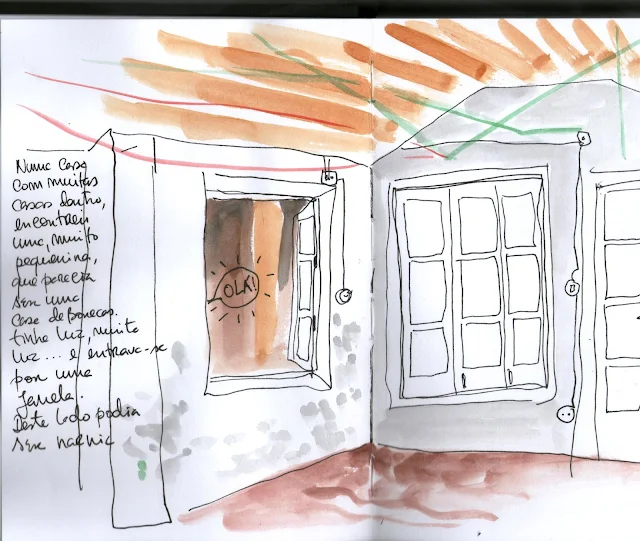 Numa casa
com muitas
casas dentro,
encontrei
uma, muito
pequenina,
que parecia
ser uma
casa de bonecas.
tinha luz, muita
luz... e entrava-se
por uma
janela.
Deste lado podia
ser narnia
OLÁ!